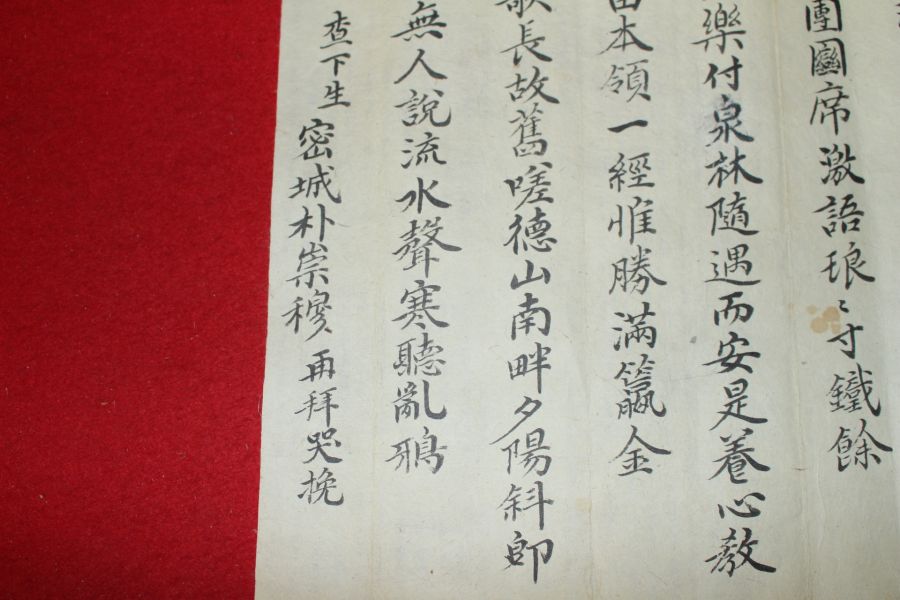 團圝席激語琅〻寸鐵餘
樂付泉林隨遇而安是養心教
本領一經惟勝滿籯金
長故舊嗟德山南畔夕陽斜即
無人說流水聲寒聽亂鴉
査下生密城朴崇穆再拜哭挽